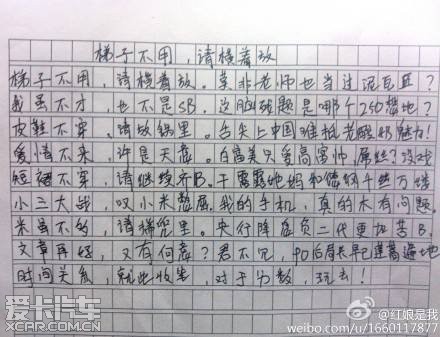 梯子不用,请横着放
梯子不用,请横着放。莫非老师也当过泥瓦匠?
我虽不才,也不是SB。这脑残题是哪个250楚地?
皮鞋不穿,请放锅里。舌尖上中国难抵老酸奶魅力!
爱情不来,许是天意。白富美只爱高富帅,屌丝?没戏
短裙不穿,请继续齐B。干露露她妈和
小三大战,叹小米憋屈。我的手机,真的木有问题。
米虽不的,请梯兜里。央行降息负二代更加苦B。
文章再好,又有何意?君不见,90后局长早已遍地
时间关系,就此收笔,对于分数,玩去!
爱卡汽车
XCAR.COM.CN
@红娘是我
weibo.com/u/1660117877